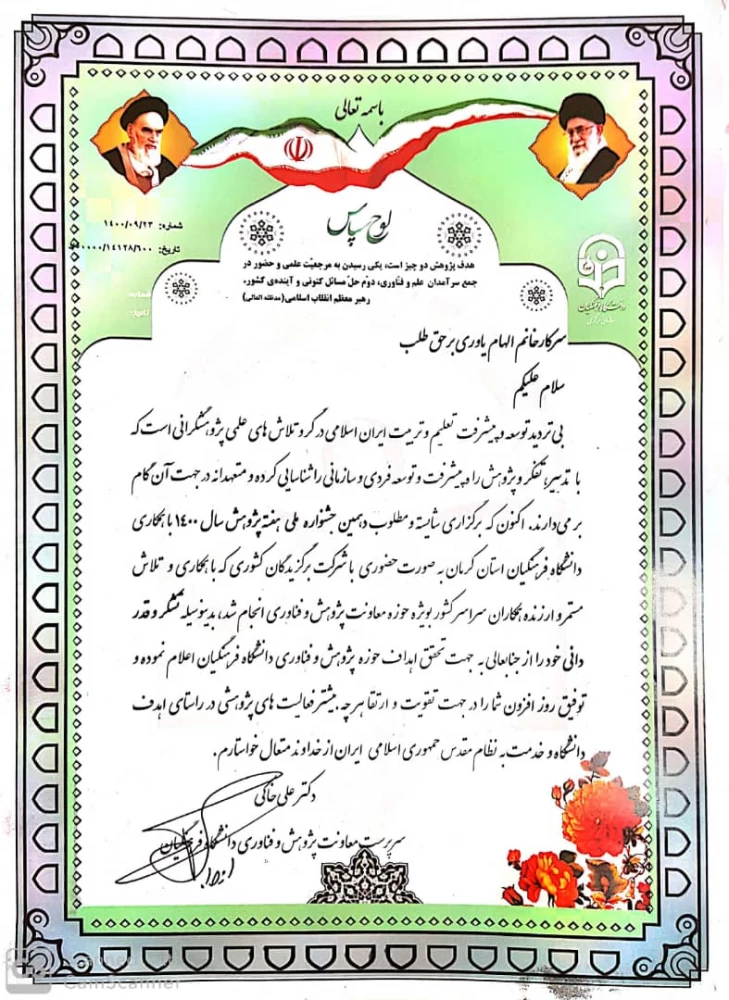 باسمه تعالی
لوح سپاس
شماره: ۱۴۰۰/۰۹/۲۳
تاریخ: ۰۰۰۰/۱۴۱۲۸/۶۰۰
هدف پژوهش دو چیز است، یکی رسیدن به مرجعیّت علمی و حضور در
جمع سرآمدان علم و فنّاوری، دوّم حلّ مسائل کنونی و آینده‌ی کشور.
رهبر معظم انقلاب اسلامی(مدظله العالی)
شماره:
تاریخ:
دانشگاه فرهنگیان
سازمان مرکزی
سرکار خانم الهام یاوری برحق طلب
سلام علیکم
بی تردید توسعه و پیشرفت تعلیم و تربیت ایران اسلامی در گرو تلاش های علمی پژوهشگرانی است که
با تدبیر، تفکر و پژوهش راه پیشرفت و توسعه فردی و سازمانی را شناسایی کرده و متعهدانه در جهت آن گام
بر می‌دارند. اکنون که برگزاری شایسته و مطلوب دهمین جشنواره ملی هفته پژوهش سال ۱۴۰۰ با همکاری
دانشگاه فرهنگیان استان کرمان به صورت حضوری با شرکت برگزیدگان کشوری که با همکاری و تلاش
مستمر و ارزنده همکاران سراسر کشور بویژه حوزه معاونت پژوهش و فناوری انجام شد، بدینوسیله تشکر و قدر
دانی خود را از جنابعالی به جهت تحقق اهداف حوزه پژوهش و فناوری دانشگاه فرهنگیان اعلام نموده و
توفیق روز افزون شما را در جهت تقویت و ارتقا هر چه بیشتر فعالیت های پژوهشی در راستای اهداف
دانشگاه و خدمت به نظام مقدس جمهوری اسلامی ایران از خداوند متعال خواستارم.
دکتر علی خاکی
سرپرست معاونت پژوهش و فناوری دانشگاه فرهنگیان
CamScanner